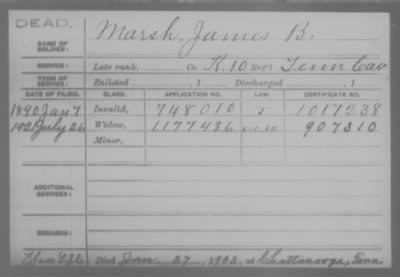 DEAD.
NAME OF SOLDIER: Marsh, James B.
SERVICE: Late rank, Co. K, 10 Reg't Tenn Cav
TERM OF SERVICE: Enlisted , 1 Discharged , 1
DATE OF FILING. CLASS. APPLICATION NO. LAW. CERTIFICATE NO.
1890 Jan 7 Invalid, 748010 1017238
July 26 Widow, 1177486 907310
Minor,
ADDITIONAL SERVICES:
REMARKS:
Died Jan. 27, 1903, at Chattanooga, Tenn.